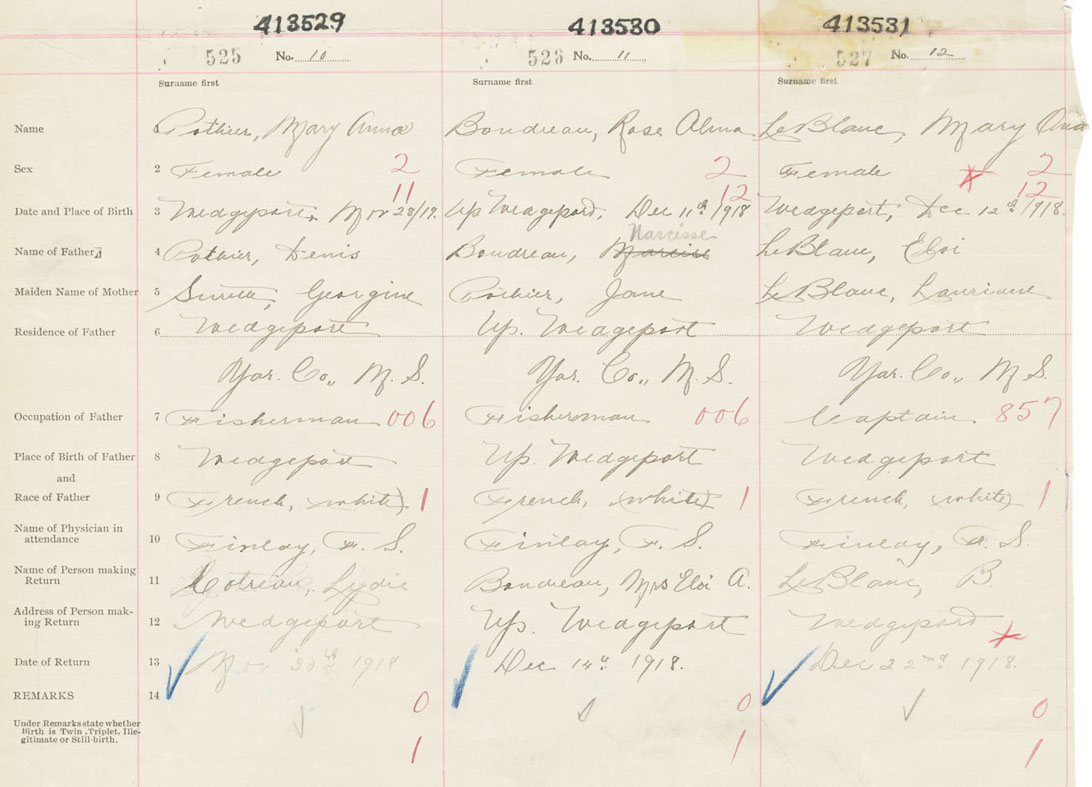 413529 413530 413531
525 No. 10 526 No. 11 527 No. 12
Surname first Surname first Surname first
Name 1 Pothier, Mary Anna Boudreau, Rose Alma LeBlanc, Mary
Sex 2 Female 2 Female 2 Female 2
11 12 12
Date and Place of Birth 3 Wedgeport, Nov 28/19. Up Wedgeport, Dec 11th/1918 Wedgeport, Dec 12th/1918.
Narcisse
Name of Father 4 Pothier, Denis Boudreau, LeBlanc, Eloi
Maiden Name of Mother 5 Surette, Georgine Pothier, Jane LeBlanc, Lauriane
Residence of Father 6 Wedgeport Up. Wedgeport Wedgeport
Yar. Co., N. S. Yar. Co., N. S. Yar. Co., N. S.
Occupation of Father 7 Fisherman 006 Fisherman 006 Captain 857
Place of Birth of Father 8 Wedgeport Up. Wedgeport Wedgeport
and
Race of Father 9 French, (white) 1 French, (white) 1 French, (white) 1
Name of Physician in
attendance 10 Finlay, F. S. Finlay, F. S. Finlay, F. S.
Name of Person making
Return 11 Cotreau, Lydie Boudreau, Mrs Eloi A. LeBlanc, B.
Address of Person mak-
ing Return 12 Wedgeport Up. Wedgeport Wedgeport
Date of Return 13 Nov 30th 1918 Dec 14th 1918. Dec 22nd 1918.
REMARKS 14 0 0 0
Under Remarks state whether
Birth is Twin, Triplet, Ille-
gitimate or Still-birth.
1 1 1